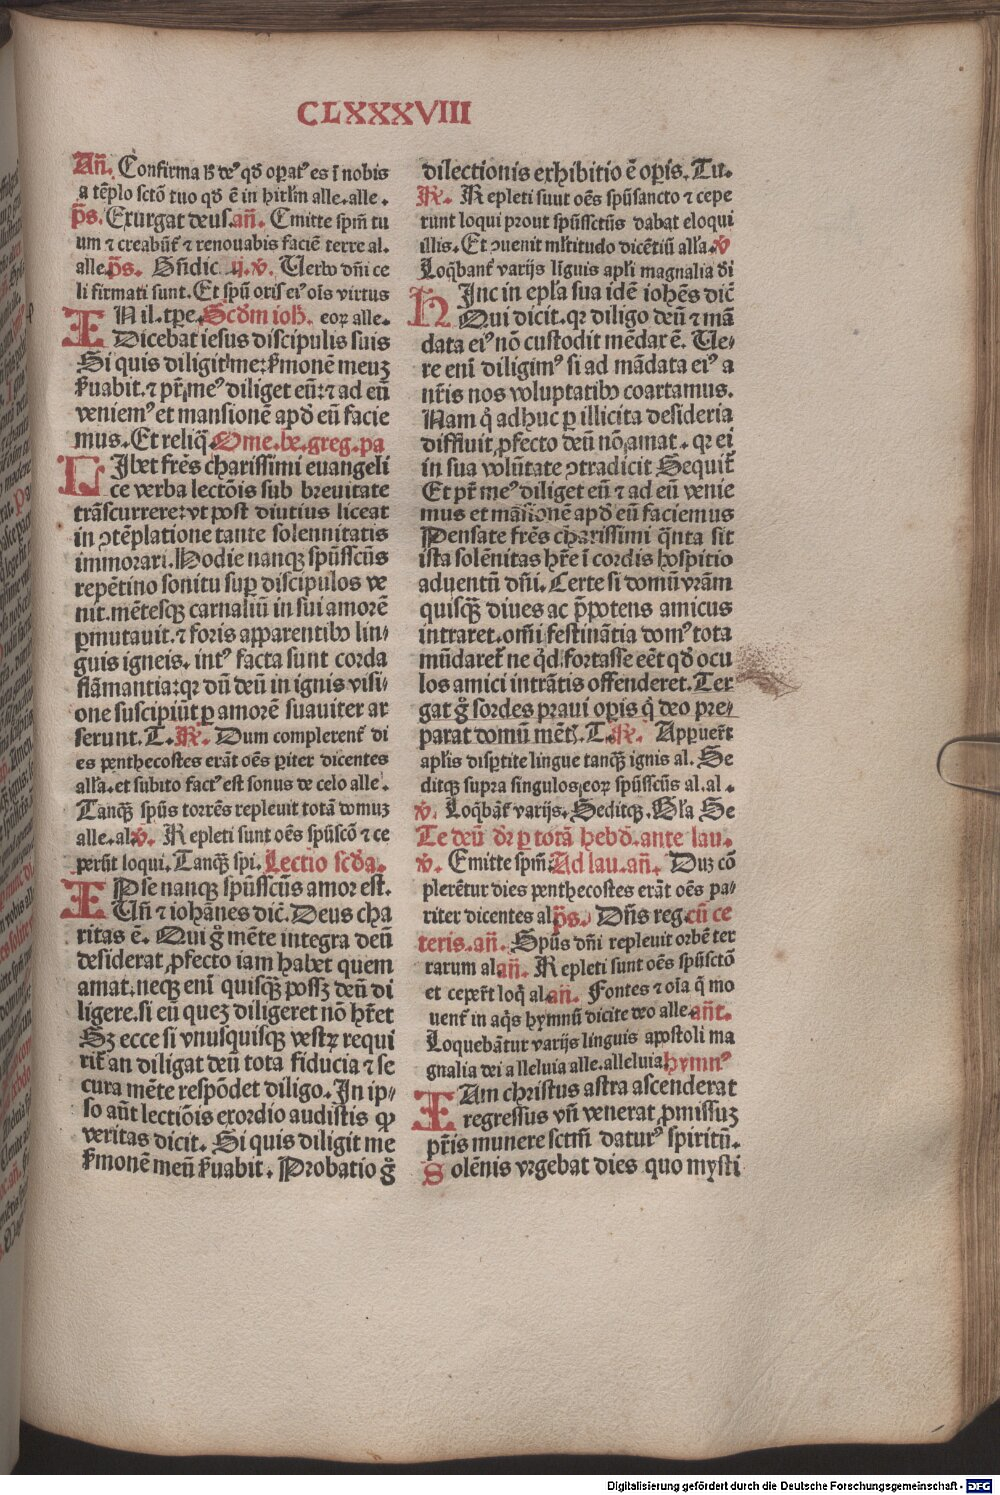 CLXXXVIII
Añ. Confirma h̄ deꝰ qd̕ opatꝰ es ī nobis
a tēplo sctō tuo qd̕ ē in hirlm̄ alle.alle.
p̄s. Exurgat deus. añ. Emitte spm̄ tu
um ⁊ creabūt̄ ⁊ renouabis faciē terre al.
alle. p̄s. Bn̄dic. ij. v̄. Uerbo dn̄i ce
li firmati sunt. Et spū oris eiꝰ oīs virtus
IN il. tꝑe. Scd̕m ioh̄. eoꝝ alle.
Dicebat iesus discipulis suis
Si quis diligit me: ẜmonē meuꝫ
ẜuabit. ⁊ pr̄ meꝰ diliget eū: ⁊ ad eū
veniemꝰ et mansionē apd̕ eū facie
mus. Et reliq̄. Ome. be. greg. pa
LIbet frēs charissimi euangeli
ce verba lectōis sub breuitate
trāscurrere: vt post diutius liceat
in ↄtēplatione tante solennitatis
immorari. Hodie nanqꝫ spūsscūs
repētino sonitu suꝑ discipulos ve
nit. mētesqꝫ carnaliū in sui amorē
ꝑmutauit. ⁊ foris apparentibꝰ lin⸗
guis igneis. intꝰ facta sunt corda
flāmantia: qꝛ dū deū in ignis visi⸗
one suscipiūt ꝑ amorē suauiter ar
serunt. T. R̄. Dum complerent̄ di
es penthecostes erāt oēs ꝑiter dicentes
alla̕. et subito factꝰ est sonus de celo alle.
Tanqꝫ spūs torrēs repleuit totā domuꝫ
alle. al v̄. Repleti sunt oēs spūscō ⁊ ce
perūt loqui. Tanqꝫ spi. Lectio scd̕a.
IPse nanqꝫ spūsscūs amor est.
Un̄ ⁊ iohānes dic̄. Deus cha
ritas ē. Qui g̊ mēte integra deū
desiderat ꝓfecto iam habet quem
amat. neqꝫ eni̅ quisqꝫ possꝫ deū di
ligere. si eū quez diligeret nō hr̄et
Sꝫ ecce si vnusquisqꝫ vestꝝ requi
rit̄ an diligat deū tota fiducia ⁊ se
cura mēte respōdet diligo. In ip⸗
so aūt lectiōis exordio audistis qꝛ
veritas dicit. Si quis diligit me
ẜmonē meū ẜuabit. Probatio g̊
dilectionis exhibitio ē opis. Tu.
R̄. Repleti sunt oēs spūsancto ⁊ cepe
runt loqui prout spūssctūs dabat eloqui
illis. Et ↄuenit ml̕titudo dicētiū alla̕. v̄
Loq̄bant̄ varijs līguis apl̕i magnalia d̕i
HInc in epl̕a sua idē iohēs dic̄
Qui dicit. qꝛ diligo deū ⁊ mā
data eiꝰ nō custodit mēdax ē. Ue⸗
re eni̅ diligimꝰ si ad mādata eiꝰ a
nr̄is nos voluptatibꝰ coartamus.
Nam q̇ adhuc ꝑ illicita desideria
diffluit ꝓfecto deū nō amat. qꝛ ei
in sua volūtate ↄtradicit Sequit̄
Et pr̄ meꝰ diliget eū ⁊ ad eū venie
mus et māsionē apd̕ eū faciemus
Pensate frēs charissimi q̄nta sit
ista solēnitas hr̄e ī cordis hospitio
aduentū dn̄i. Certe si domū vrām
quisqꝫ diues ac p̄potens amicus
intraret. om̄i festinātia domꝰ tota
mūdaret̄ ne q̇d fortasse eēt qd̕ ocu
los amici intrātis offenderet. Ter
gat g̊ sordes praui opis q̇ deo pre⸗
parat domū mētꝭ. T. R̄. Apparuer̄t
apl̕is disꝑtite lingue tanqꝫ ignis al. Se
ditqꝫ supra singulos eoꝝ spūsscūs al. al.
v̄. Loq̄bāt̄ varijs. Seditqꝫ. Gl̕a Se
Te deū dr̄ ꝑ totā hebd̕. ante lau.
v̄. Emitte spm̄. Ad lau. añ. Duꝫ cō
plerētur dies penthecostes erāt oēs pa⸗
riter dicentes al p̄s. Dn̄s reg. cū ce
teris. añ. Spūs dn̄i repleuit orbē ter
rarum al añ. Repleti sunt oēs spūsctō
et ceper̄t loq̇ al. añ. Fontes ⁊ oīa q̄ mo
uent̄ in aq̇s hymnū dicite deo alle. añt.
Loquebātur varijs linguis apostoli ma
gnalia dei alleluia alle. alleluia hymnꝰ
IAm christus astra ascenderat
regressus vn̄ venerat ꝓmissuꝫ
pr̄is munere sctm̄ daturꝰ spiritū.
Solēnis vrgebat dies quo mysti
Digitalisierung gefördert durch die Deutsche Forschungsgemeinschaft - DFG